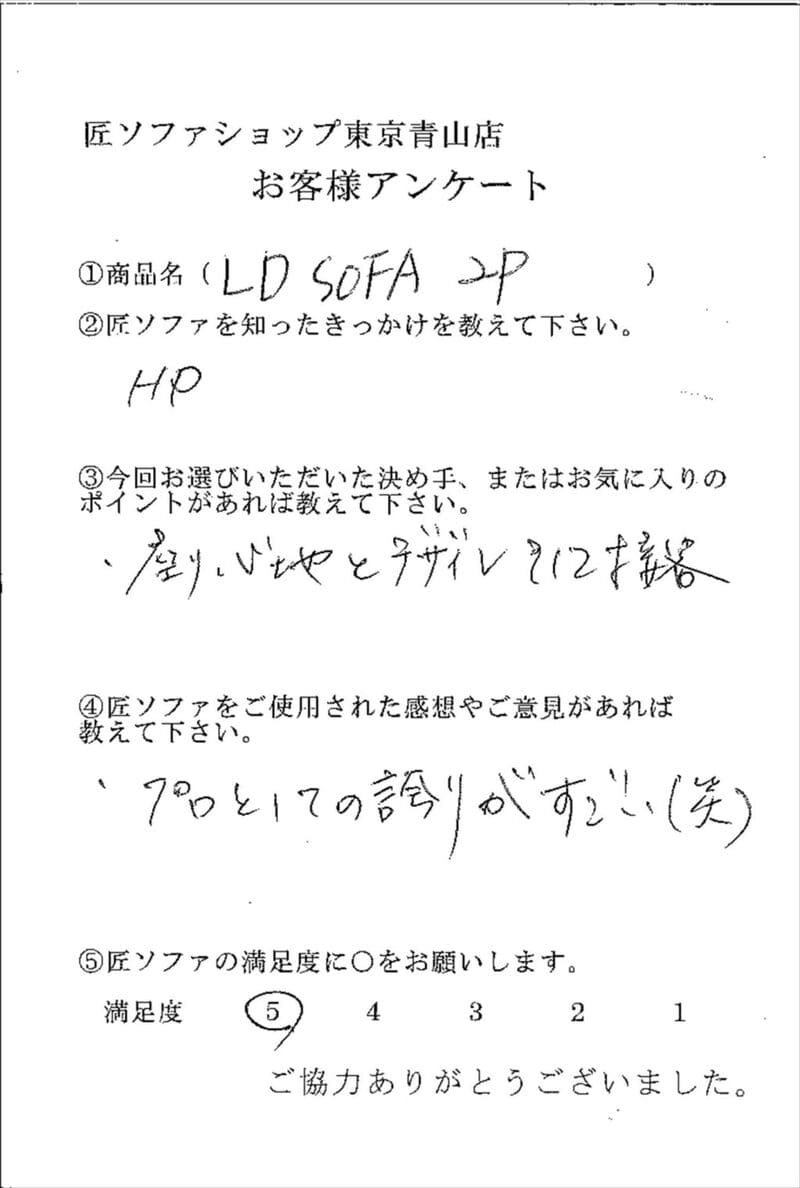 匠ソファショップ東京青山店
お客様アンケート
①商品名(LD SOFA 2P)
②匠ソファを知ったきっかけを教えて下さい。
HP
③今回お選びいただいた決め手、またはお気に入りの
ポイントがあれば教えて下さい。
・座り心地とデザイン 特に接客
④匠ソファをご使用された感想やご意見があれば
教えて下さい。
・プロとしての誇りがすごい(笑)
⑤匠ソファの満足度に○をお願いします。
満足度 5 4 3 2 1
ご協力ありがとうございました。